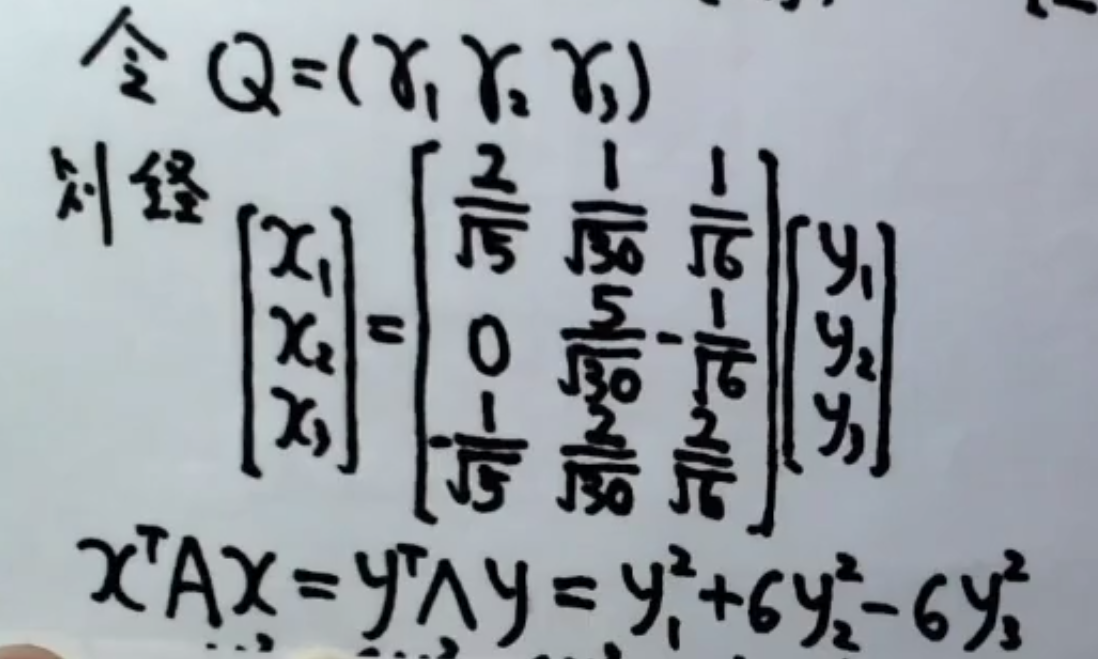 令 Q=(γ₁ γ₂ γ₃)
则经
[x₁ x₂ x₃] = [2/√5 1/√30 1/√6; 0 5/√30 -1/√6; -1/√5 2/√30 2/√6] [y₁ y₂ y₃]
xᵀAx = yᵀΛy = y₁²+6y₂²-6y₃²